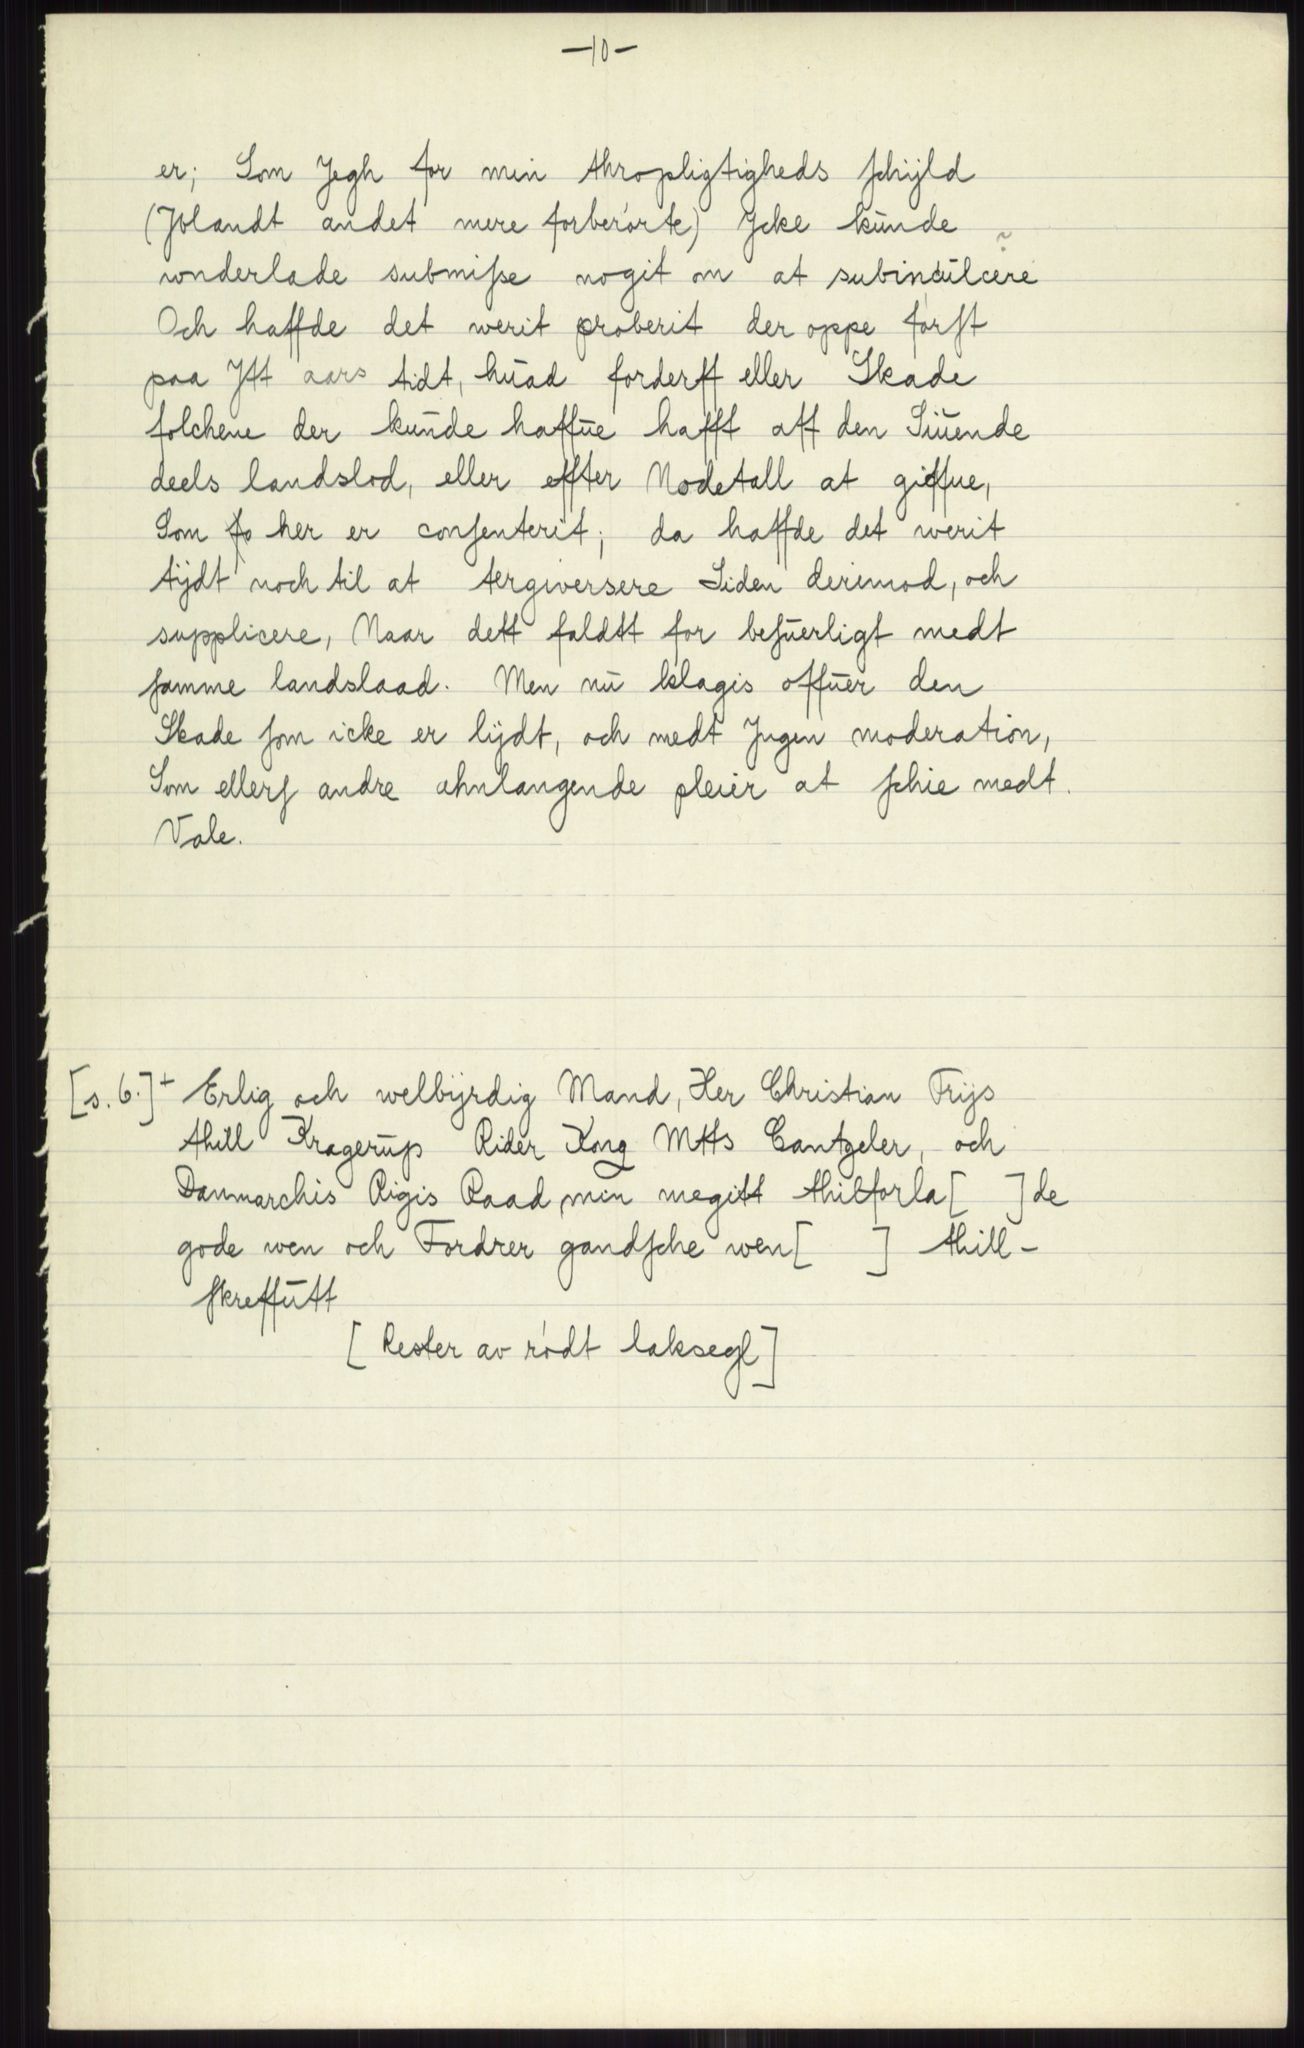 —10—
er; Som Jegh for min thropligtigheds schijld
(Jblandt andet mere forberörte) Jcke kunde
wnderlade submisse nogit om at subinculcere ~
Och haffde det werit proberit der oppe först
paa Jtt aars tidt, huad forderff eller Skade
folchene der kunde haffue hafft aff den Siuende
deels landslod, eller effter Nodetall at giffue,
Som jo her er consenterit; da haffde det werit
tÿdt noch til at tergiversere Siden derimod, och
supplicere, Naar dett faldtt for besuerligt medt
samme landslaad. Men nu klagis offuer den
Skade som icke er lijdt, och medt Jngen moderation,
Som ellers andre ahnlangende pleier at schie medt.
Vale.
[s. 6.]+ Erlig och welbÿrdig Mand, Her Christian Frijs
thill Kragerup Rider Kong Mtts Cantzeler, och
Danmarchis Rigis Raad, min megitt thilforla[ ]de
gode wen och Fordrer gandsche wen[ ] thill-
skreffutt
[Rester av rödt laksegl]